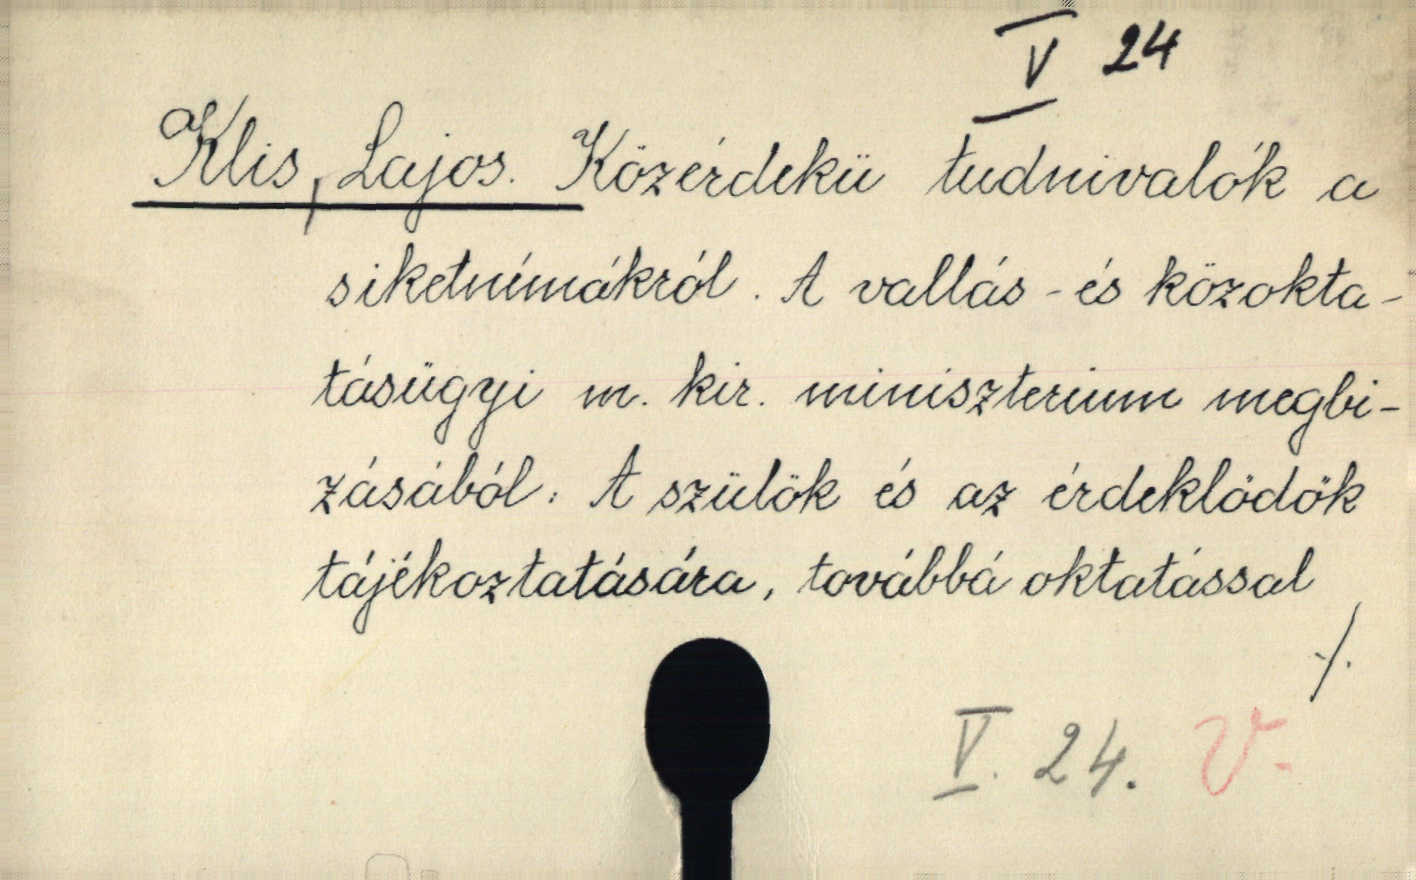 V 24
Klis, Lajos. Közérdekü tudnivalók a
siketnémákról. A vallás- és közokta-
tásügyi m. kir. miniszterium megbi-
zásából: A szülök és az érdeklödök
tájékoztatására, továbbá oktatással
./.
V. 24. V.